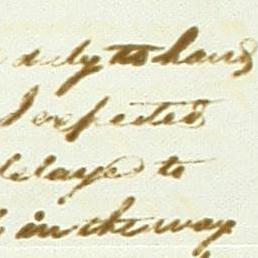 duly to hand
I expected
delayed to
in the way